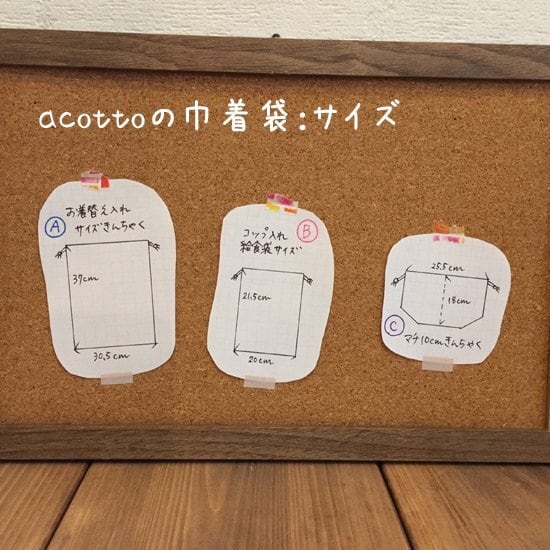 acottoの巾着袋:サイズ
A
お着替え入れ
サイズきんちゃく
37cm
30.5cm
B
コップ入れ
給食袋サイズ
21.5cm
20cm
25.5cm
18cm
C
マチ10cmきんちゃく